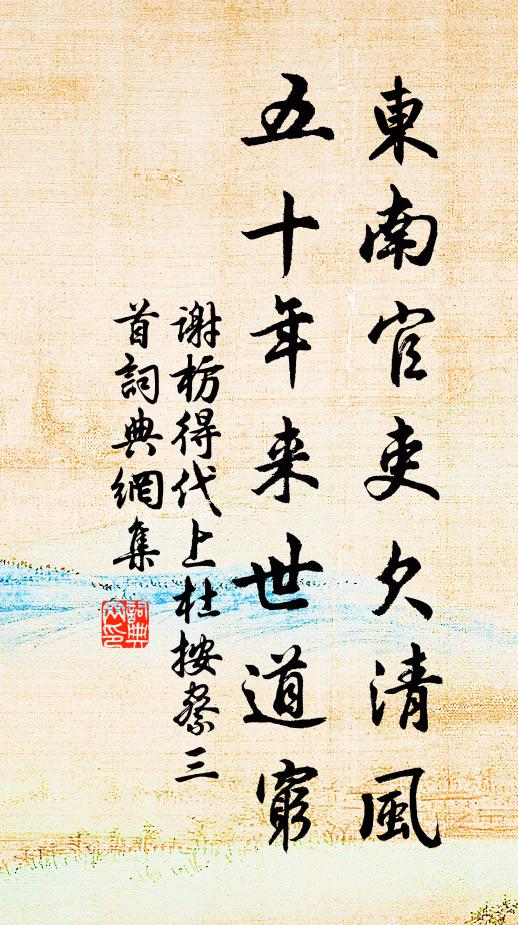 東南官吏欠清風
五十年来世道窮
謝枋得代上杜按察三
首詞典網集
詞典